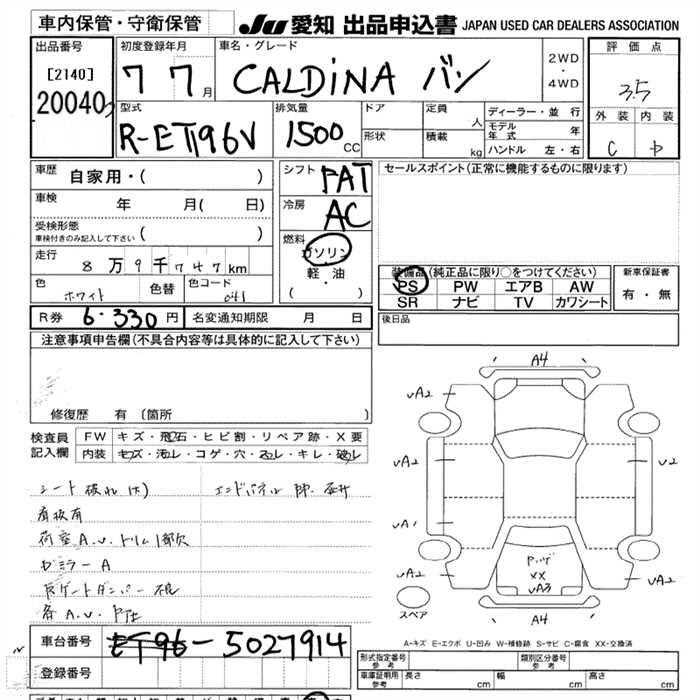 車内保管・守衛保管
JU 愛知 出品申込書 JAPAN USED CAR DEALERS ASSOCIATION
出品番号
[2140]
20040
初度登録年月
7 7月
車名・グレード
CALDINA バン
2WD
・
4WD
評価点
3.5
外装 内装
C 中
型式
R-ET196V
排気量
1500 CC
ドア
形状
定員 人
積載 kg
ディーラー・並行
モデル年式 年
ハンドル 左・右
車歴 自家用・( )
車検 年 月( 日)
受検形態
車検付きのみ記入して下さい ( )
走行 8万9千747km
色 ホワイト 色替 色コード 041
シフト FAT
冷房 AC
燃料
ガソリン
軽・油
( ・ )
セールスポイント(正常に機能するものに限ります)
装備品(純正品に限り○をつけてください)
PS PW エアB AW
SR ナビ TV カワシート
新車保証書
有・無
R券 6.330円 名変通知期限 月 日
後日品
注意事項申告欄(不具合内容等は具体的に記入して下さい)
修復歴 有(箇所 )
検査員記入欄
FW キズ・飛石・ヒビ割・リペア跡・X要
内装 キズ・汚レ・コゲ・穴・スレ・キレ・破レ
シート破れ(大) エンドパネル
看板有
荷室A.U.トリム1部欠
ドミラーA
Rゲートダンパー不良
各A.U.
A4
UA2 UA2
UA2 U2
UA1
UA2 UA2
Pッゲ
XX
UA3
A4
スペア
A-キズ E-エクボ U-凹み W-補修跡 S-サビ C-腐食 XX-交換済
車台番号 ET96-5027914
登録番号
形式指定番号 参考
類別区分番号 参考
車庫証明用 参考 長さ cm 幅 cm 高さ cm